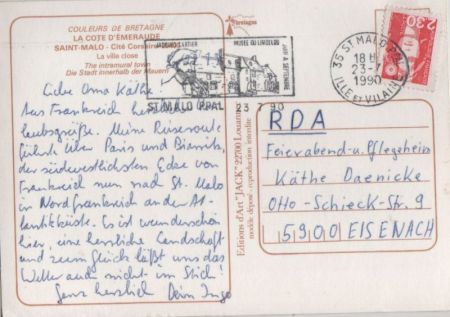 COULEURS DE BRETAGNE
LA COTE D'ÉMERAUDE
SAINT-MALO - Cité Corsaire
La ville close
The intramural town
Die Stadt innerhalb der Mauern
Bretagne
JACQUES CARTIER
MUSEE DU LIMOELOU
ST MALO PPAL 23 7 90
35 ST MALO PPAL
18 H
23-7
1990
ILLE ET VILAINE
2,30
Liebe Oma Käthe
Aus Frankreich herzliche
laubsgrüße. Meine Reiseroute
führte über Paris und Biarritz,
der südwestlichsten Ecke von
Frankreich nun nach St. Malo
in Nordfrankreich an der At-
lantikküste. Es ist wunderschön
hier, eine herrliche Landschaft
und zum Glück läßt uns das
Wetter auch nicht im Stich!
Ganz herzlich Dein Ingo
Editions d'Art "JACK" 22700 Louannec
modèle déposé - reproduction interdite
RDA
Feierabend-u. Pflegeheim
Käthe Daenicke
Otto-Schieck-Str. 9
5900 EISENACH